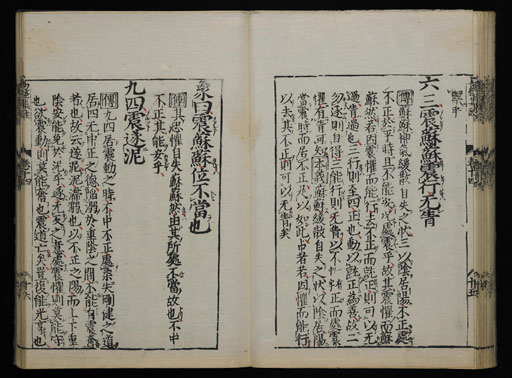 六三震蘇蘇震行无眚
傳蘇蘇神氣緩散自失之狀三以陰居陽不正處
不正於平時且不能安況處震乎故其震懼而蘇
蘇然若因震懼而能行去不正而就正則可以无
過眚過也三行則至四正也動以就正爲善故二
勿逐則自得三能行則无眚以不正而處震
懼有眚可知本義蘇蘇緩散自失之狀以陰居陽
當震時而居不正是以如此占者若因懼而能行
以去其不正則可以无眚矣
象曰震蘇蘇位不當也
傳其恐懼自失蘇蘇然由其所處不當故也不中
不正其能安乎
九四震遂泥
傳九四居震動之時不中不正處柔失剛健之道
居四无中正之德陷溺於重陰之間不能自震奮
者也故云遂泥泥滯溺也以不正之陽而上下重
陰安能免於泥乎遂无反之意處震懼則莫能守
也欲震動則莫能奮也震道亡矣豈復能光亨也